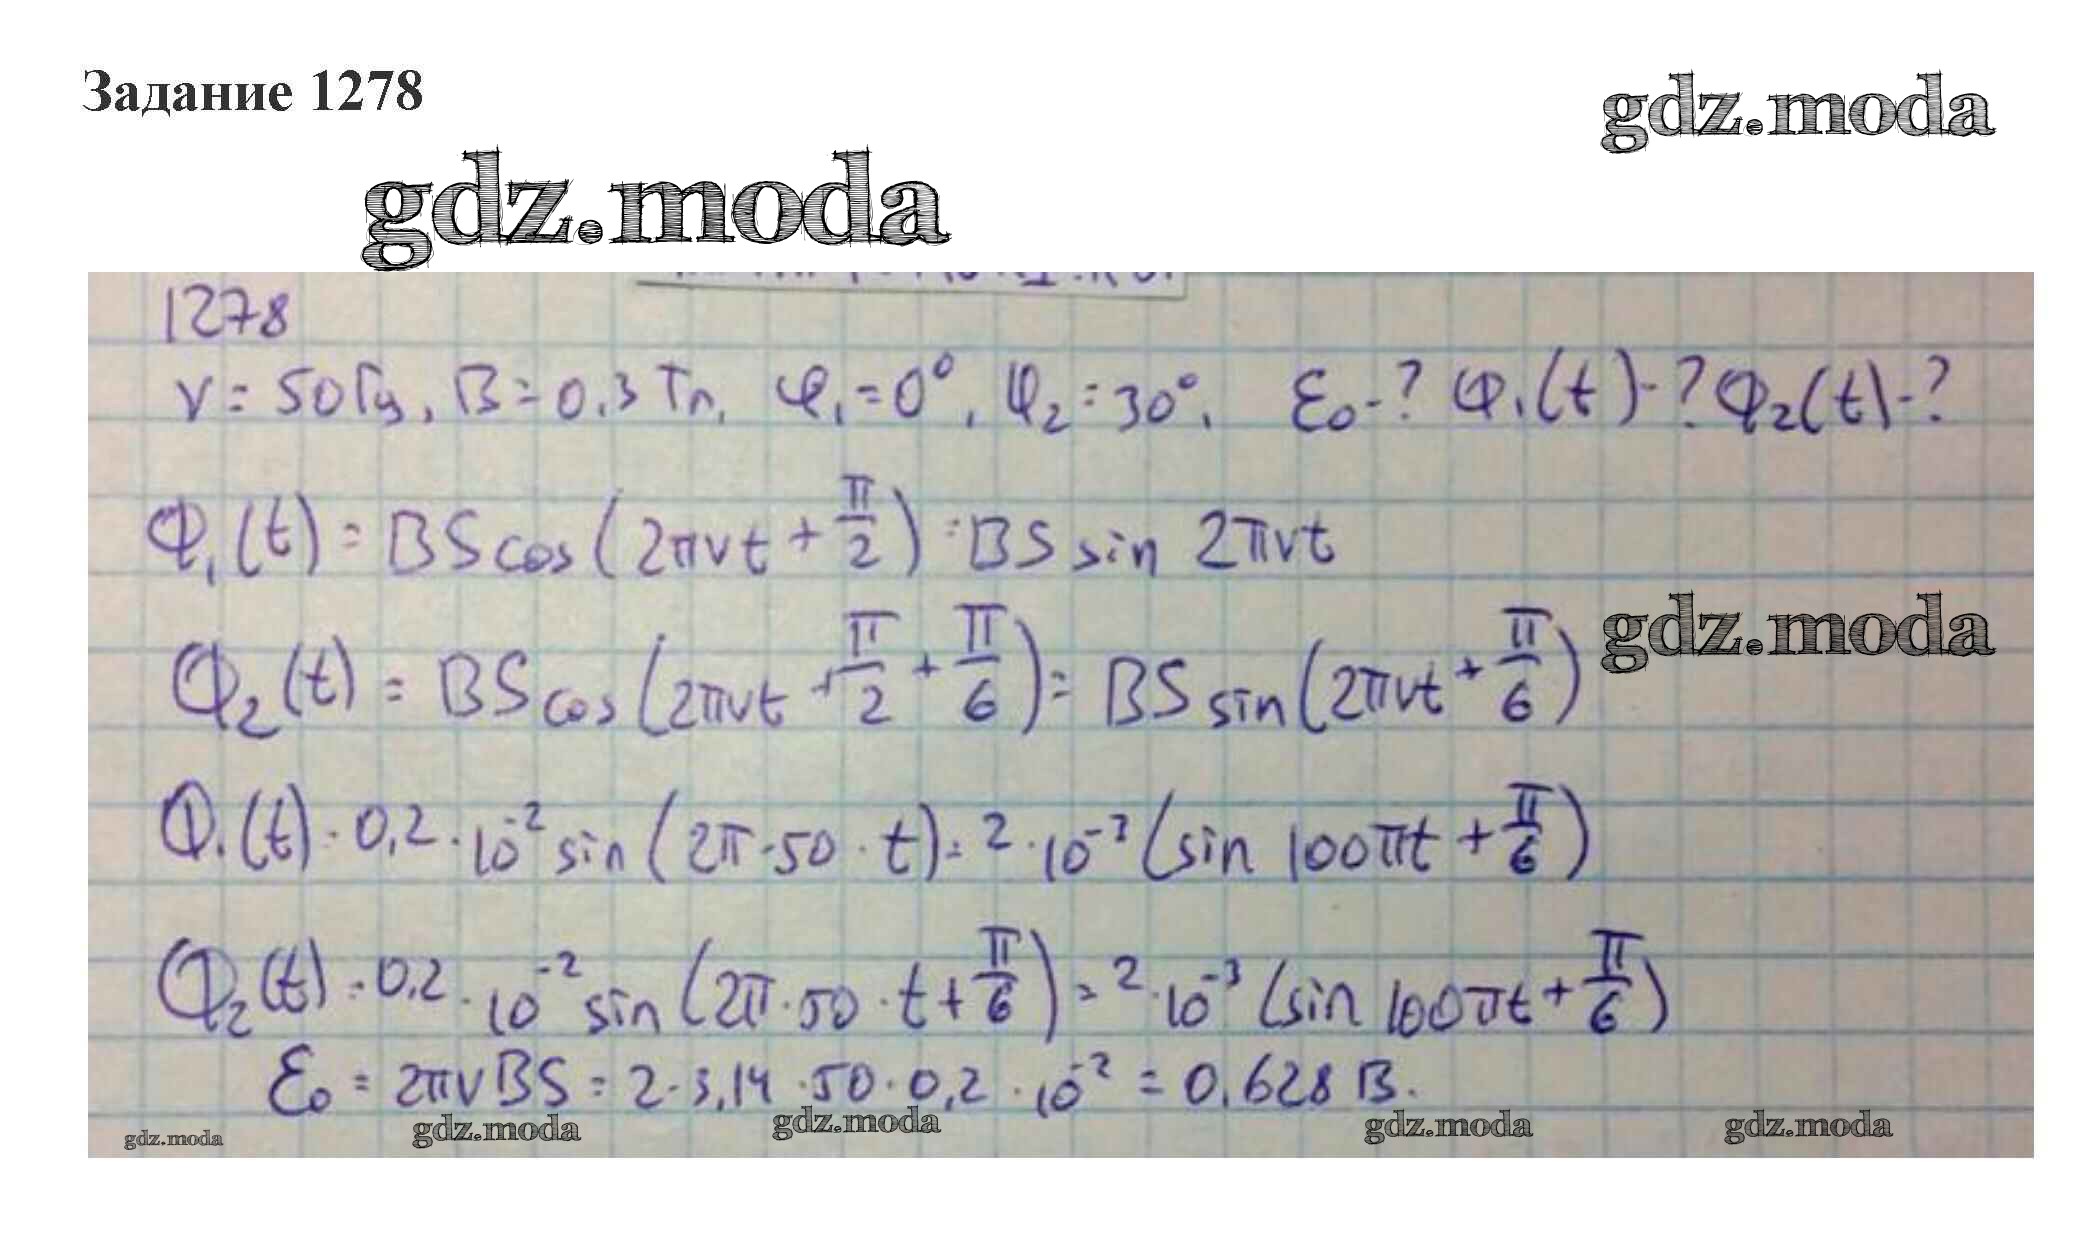 Задание 1278
gdz.moda
gdz.moda
1278
ν = 50 Гц, B = 0.3 Тл, φ₁ = 0°, φ₂ = 30°. ℰ₀ - ? Φ₁(t) - ? Φ₂(t) - ?
Φ₁(t) = BS cos(2πνt + π/2) = BS sin 2πνt
Φ₂(t) = BS cos(2πνt + π/2 + π/6) = BS sin(2πνt + π/6)
gdz.moda
Φ₁(t) = 0,2 · 10⁻² sin(2π · 50 · t) = 2 · 10⁻³ (sin 100πt + π/6)
Φ₂(t) = 0,2 · 10⁻² sin(2π · 50 · t + π/6) = 2 · 10⁻³ (sin 100πt + π/6)
ℰ₀ = 2πνBS = 2 · 3,14 · 50 · 0,2 · 10⁻² = 0,628 В.
gdz.moda gdz.moda gdz.moda gdz.moda gdz.moda